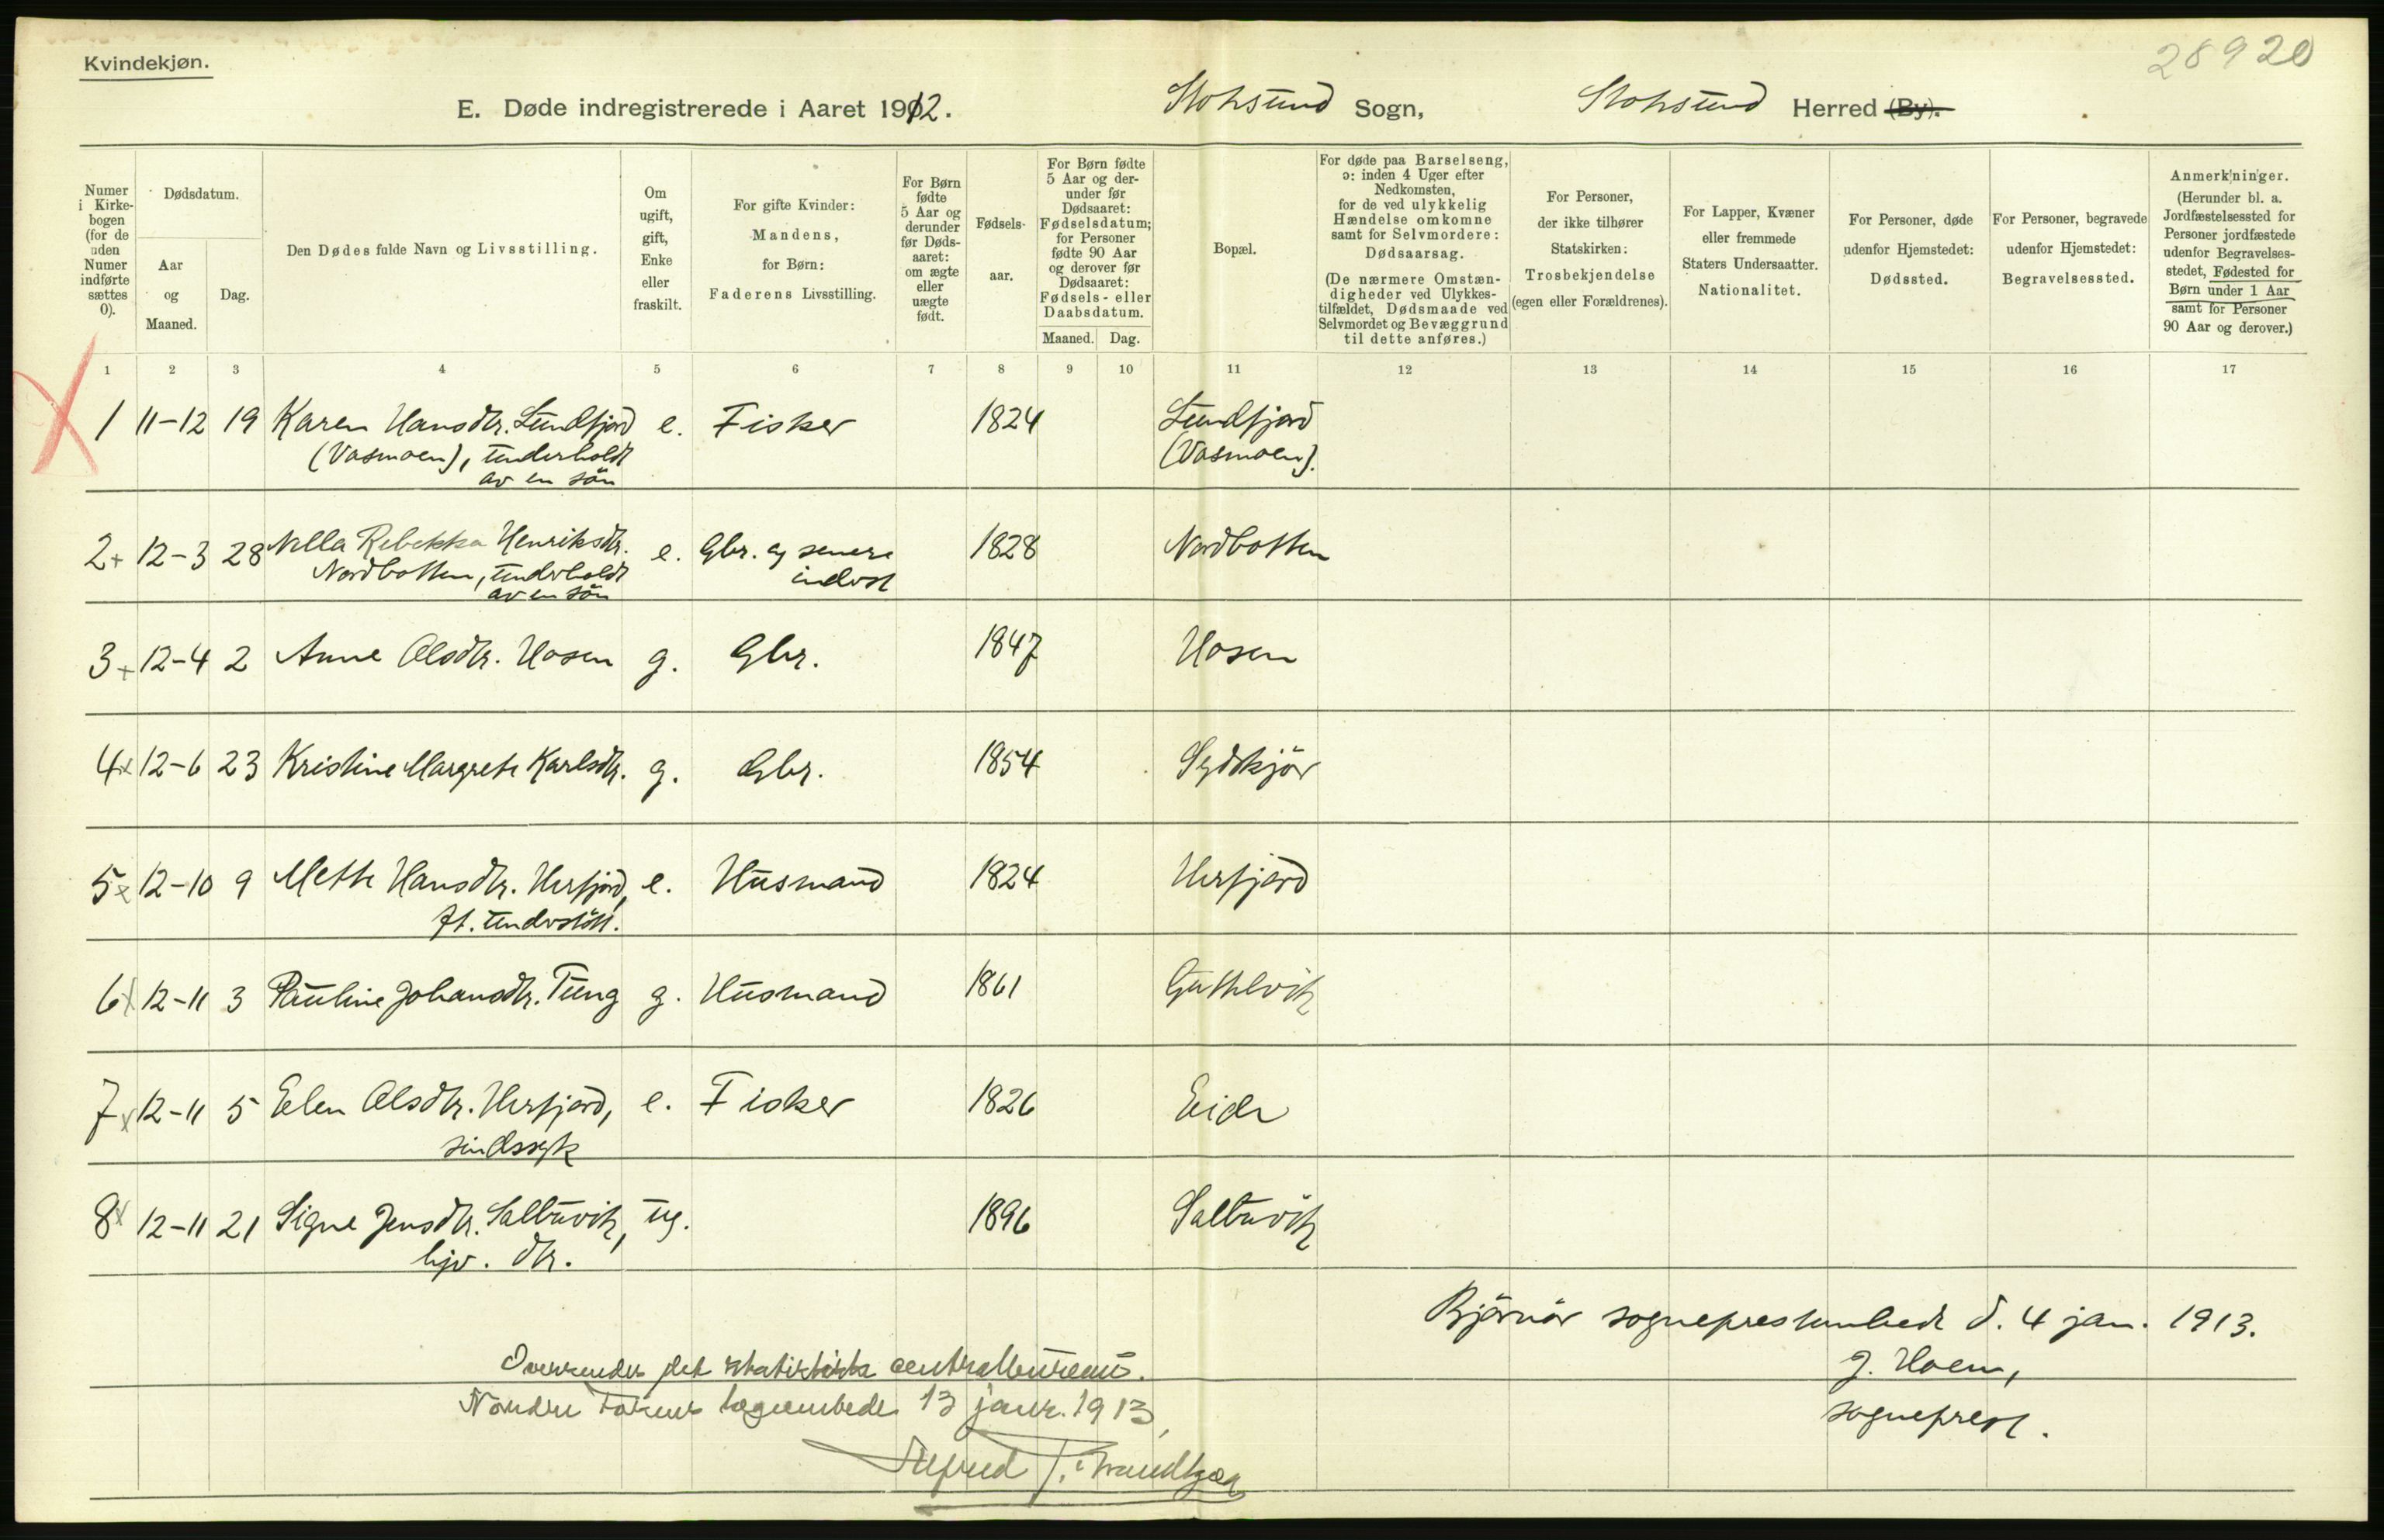 Kvindekjøn.
28920
E. Døde indregistrerede i Aaret 1912. Stoksund Sogn, Stoksund Herred (By).
Numer i Kirkebogen (for de uden Numer indførte sættes 0).
Dødsdatum.
Aar og Maaned.
Dag.
Den Dødes fulde Navn og Livsstilling.
Om ugift, gift, Enke eller fraskilt.
For gifte Kvinder: Mandens, for Børn: Faderens Livsstilling.
For Børn fødte 5 Aar og derunder før Dødsaaret: om ægte eller uægte født.
Fødselsaar.
For Børn fødte 5 Aar og derunder før Dødsaaret: Fødselsdatum; for Personer fødte 90 Aar og derover før Dødsaaret: Fødsels- eller Daabsdatum.
Maaned. Dag.
Bopæl.
For døde paa Barselseng, ɔ: inden 4 Uger efter Nedkomsten, for de ved ulykkelig Hændelse omkomne samt for Selvmordere: Dødsaarsag.
(De nærmere Omstændigheder ved Ulykkestilfældet, Dødsmaade ved Selvmordet og Bevæggrund til dette anføres.)
For Personer, der ikke tilhører Statskirken: Trosbekjendelse (egen eller Forældrenes).
For Lapper, Kvæner eller fremmede Staters Undersaatter. Nationalitet.
For Personer, døde udenfor Hjemstedet: Dødssted.
For Personer, begravede udenfor Hjemstedet: Begravelsessted.
Anmerkninger.
(Herunder bl. a. Jordfæstelsessted for Personer jordfæstede udenfor Begravelsesstedet, Fødested for Børn under 1 Aar samt for Personer 90 Aar og derover.)
1 2 3 4 5 6 7 8 9 10 11 12 13 14 15 16 17
1 11-12 19 Karen Hansdtr. Sundfjord e. Fisker 1824 Sundfjord
(Vasmoen), underholdt (Vasmoen).
av en sön
2 + 12-3 28 Nella Rebekka Henriksdtr. e. Gbr. og senere 1828 Nordbotten
Nordbotten, underholdt inderst
av en sön
3 + 12-4 2 Anne Olsdtr. Hosen g. Gbr. 1847 Hosen
4 x 12-6 23 Kristine Margrete Karlsdtr. g. Gbr. 1854 Sydskjör
5 x 12-10 9 Mette Hansdtr. Herfjord, e. Husmand 1824 Herfjord
ft. understött.
6 x 12-11 3 Pauline Johansdtr. Tung g. Husmand 1861 Guthelvik
7 x 12-11 5 Elen Olsdtr. Herfjord, e. Fisker 1826 Eide
sindssyk
8 x 12-11 21 Signe Jensdtr. Saltbuvik, ug. 1896 Saltbuvik
hjv. dtr.
Bjørnör sogneprestembede d. 4 jan. 1913.
J. Hoem,
sogneprest.
Oversendes det statistiske centralbureau.
Nordre Fosens lægeembede 13 janr. 1913,
Alfred